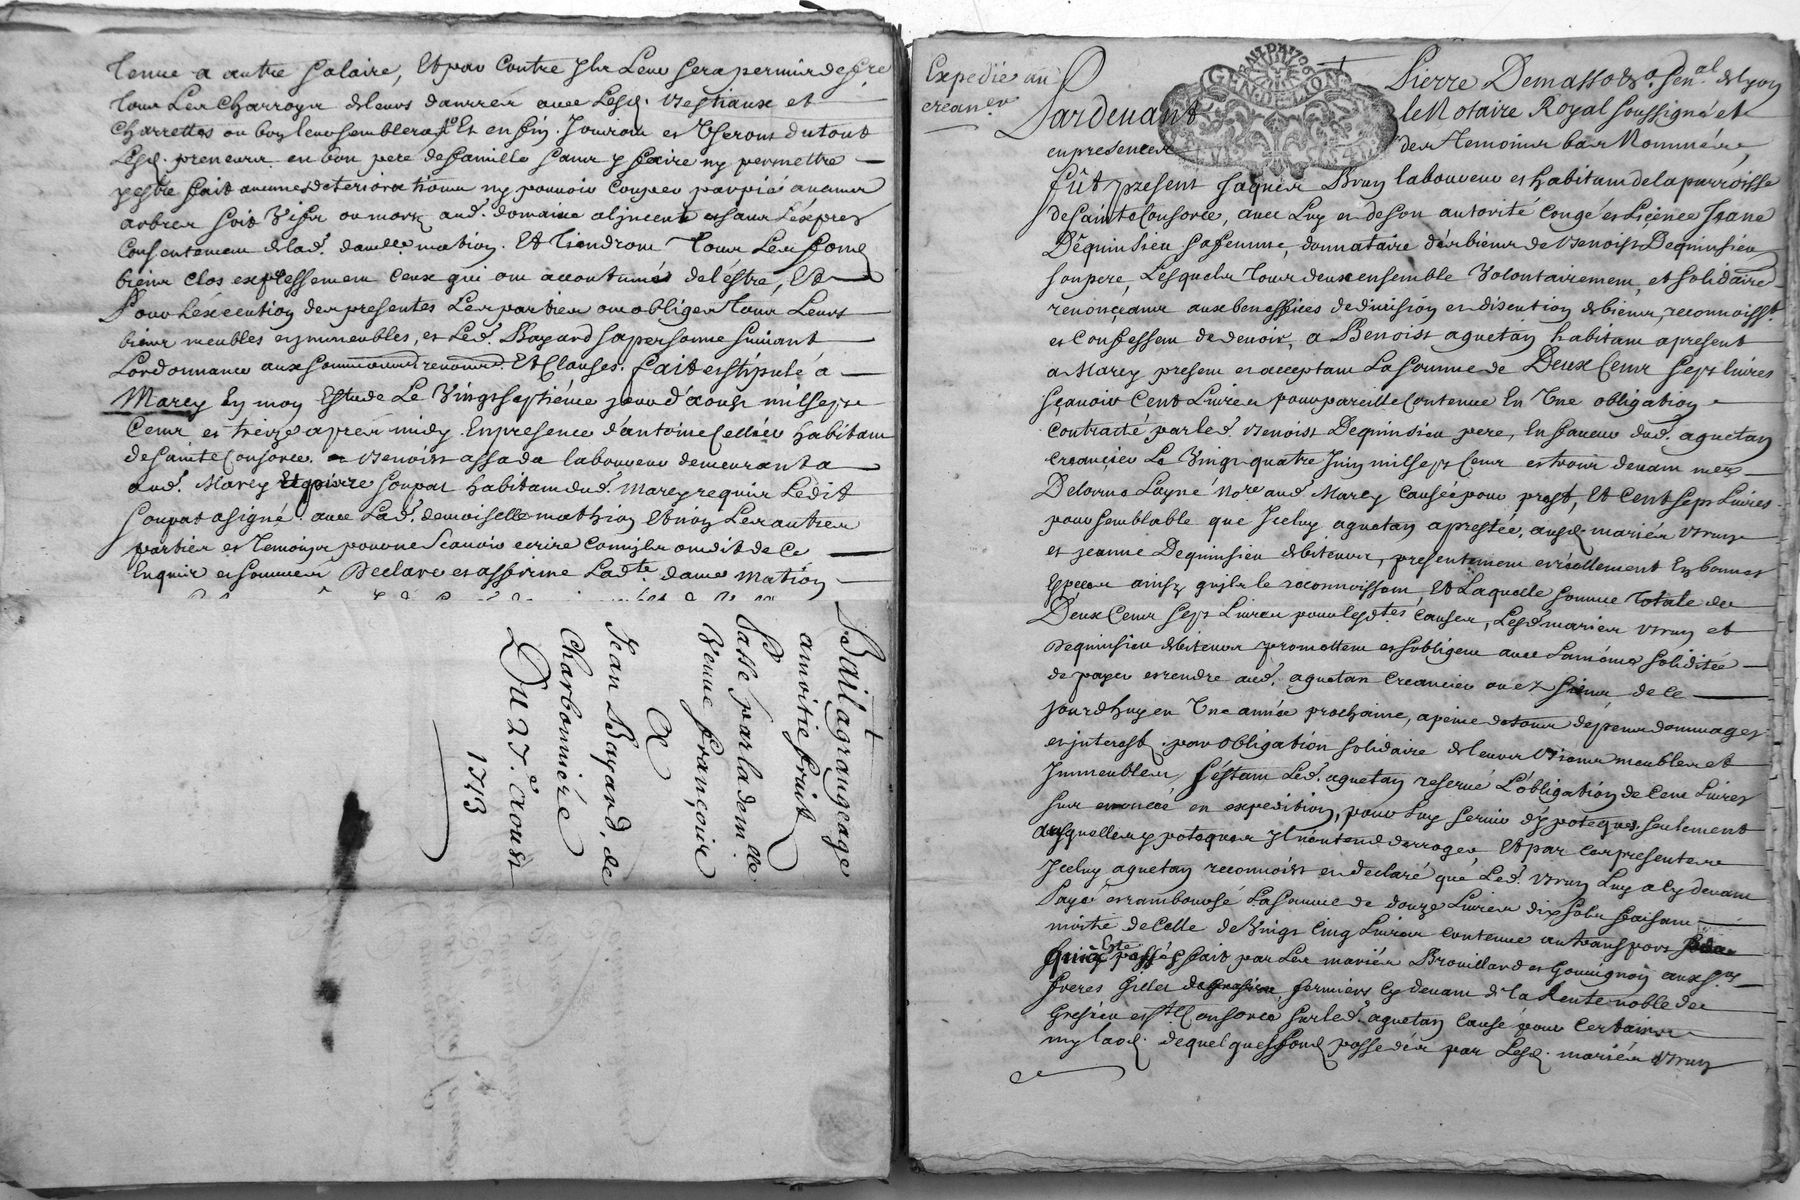 tenue a autre salaire, Et par contre Ils Leur sera permis de fre
tous Les Charroys de leurs danrées avec Lesd. Bestiaux et
Charrettes ou bon leur semblera Et en fin Jouiront et Useront du tout
Lesd. preneurs en bon pere de famille sans y faire ny permettre
y estre fait aucunes deteriorations ny pouvoir couper par pié aucuns
arbres soit Vifs ou morts aud. domaine sans L'exprès
Consentement de lad. dam.lle mation. Et Tiendront Tous Les fonds
biens clos expressement ceux qui ont accoutumés de l'éstre, Et
Pour L'éxécution des presentes Les parties ont obligés Tous Leurs
biens meubles et immeubles, et Led. Bayard sa personne suivant
Lordonnance aux soumissions renons. Et Clauses. fait et stipulé à
Marcy En mon Estude Le Vingt septiéme jour d'aoust mil sept
Cent et treize après midy En presence d'antoine Cellier habitant
de sainte Consorce et Benoist assada laboureur demeurant a
aud. Marcy Et pierre soupat habitant dud. Marcy requis Ledit
soupat a signé avec Lad. demoiselle mathion Et non Les autres
parties et temoings pour ne scavoir ecrire Comm'ils ont dit de ce
Enquis et sommés Declare et afferme Lad.te dame Mation
Bail a grangeage
a moitié fruit
Passé par la dem.lle
Veuve françois
A
Jean Bayard, de
Charbonniére
Du 27.e aoust
1713
Expedié au
crean.er
GEN. DE LION
Pardevant Pierre Demasso de sen.al de Lyon
le Notaire Royal soussigné et
en presences des Temoins bas Nommés,
fût present Jaques Brun laboureur et habitant de la parroisse
de Sainte Consorce, avec Luy et de son autorité congé et Licence Jeane
Dequinsieu sa femme, donnataire des biens de Benoist Dequinsieu
son pere, Lesquels Tous deux ensemble Volontairement, et solidaire
renonçeants aux benefices de division et discution de biens, reconnoisst
et Confessent de devoir, a Benoist aguetan habitant apresent
a Marcy present et acceptant La somme de Deux Cents sept livres
sçavoir Cent Livres pour pareille Contenue En Une obligation
Contracté par led. Benoist Dequinsieu pere, En faveur dud. aguetan
Creancier Le Vingt quatre Juin mil sept Cent et trois devant me
Delorme Layné No.re aud. Marcy Causée pour prest, Et Cent sept Livres
pour semblable que Iceluy aguetan a prestée, ausd. mariés Brun
et jeanne Dequinsieu debiteurs, presentement et réellement En bonnes
Especes ainsy qu'ils le reconnoissent, Et Laquelle somme Totale de
Deux Cents sept Livres pour lesd.tes causes, Lesd. mariés Brun et
Dequinsieu debiteurs promettent et s'obligent avec La méme soliditée
de payer et rendre aud. aguetan Creancier ou ez siens de ce
jourdhuy en Une année prochaine, a peine de tous dépens dommages
et interests par obligation solidaire de leurs Biens meubles et
Immeubles, s'éstant Led. aguetan reservé L'obligation de Cent Livres
sus enoncée en expedition, pour Luy servir d'ypoteques, seulement
ausquelles ypoteques Il n'entend derroger Et par ces presentes
Iceluy aguetan reconnoist et declaré que Led. Brun Luy a Cy devant
Payé et rambourcé La somme de douze Livres dix sols faisant
moitié de Celle de Vingt Cinq Livres contenue au transport
Este passé fait par Les mariés Brouillard et Gouvignon aux s.rs
freres Gillet fermiers Cy devant de la Rente noble de
Gresieu et S.te Consorce sur led. aguetan Cause pour Certains
mylaods de quelques fonds possedés par Lesd. mariés Brun